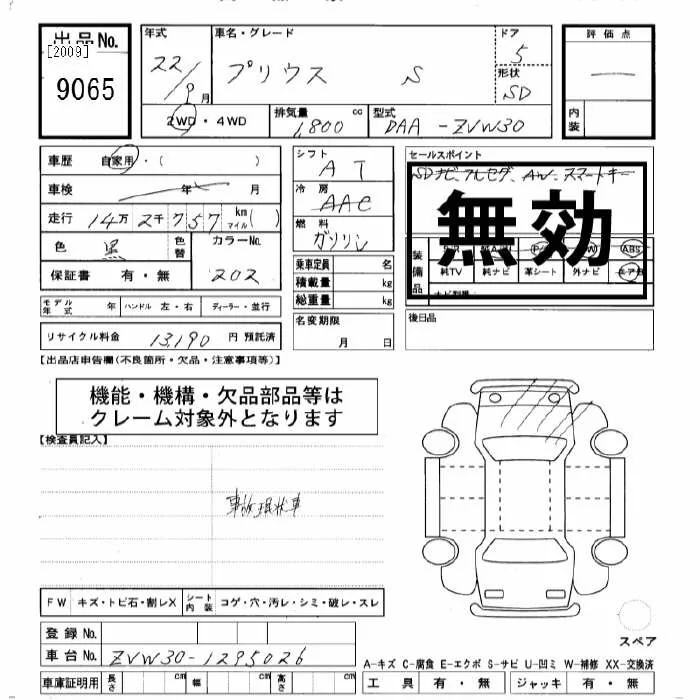 出品No. 年式 車名・グレード ドア 評価点
[2009] 22/9月 プリウス S 5
9065 形状 SD
2WD・4WD 排気量 cc 1,800 型式 DAA-ZVW30 内装
車歴 自家用・( ) シフト AT セールスポイント
車検 年 月 冷房 AAC SDナビ、フルセグ、AW、スマートキー
走行 14万2千757km マイル( ) 燃料 ガソリン 無効
色 黒 色替 カラーNo. 202 装備品 ABS
保証書 有・無 乗車定員 名 純TV 純ナビ 革シート 外ナビ エアB
積載量 kg
総重量 kg
モデル年式 年 ハンドル 左・右 ディーラー・並行 名変期限 月 日 後日品
リサイクル料金 13,190円 預託済
【出品店申告欄(不良箇所・欠品・注意事項等)】
機能・機構・欠品部品等は
クレーム対象外となります
【検査員記入】
事故現状車
FW キズ・トビ石・割レX シート内装 コゲ・穴・汚レ・シミ・破レ・スレ
登録No. スペア
車台No. ZVW30-1295026
A-キズ C-腐食 E-エクボ S-サビ U-凹ミ W-補修 XX-交換済
車庫証明用 長さ cm 幅 cm 高さ cm 工具 有・無 ジャッキ 有・無